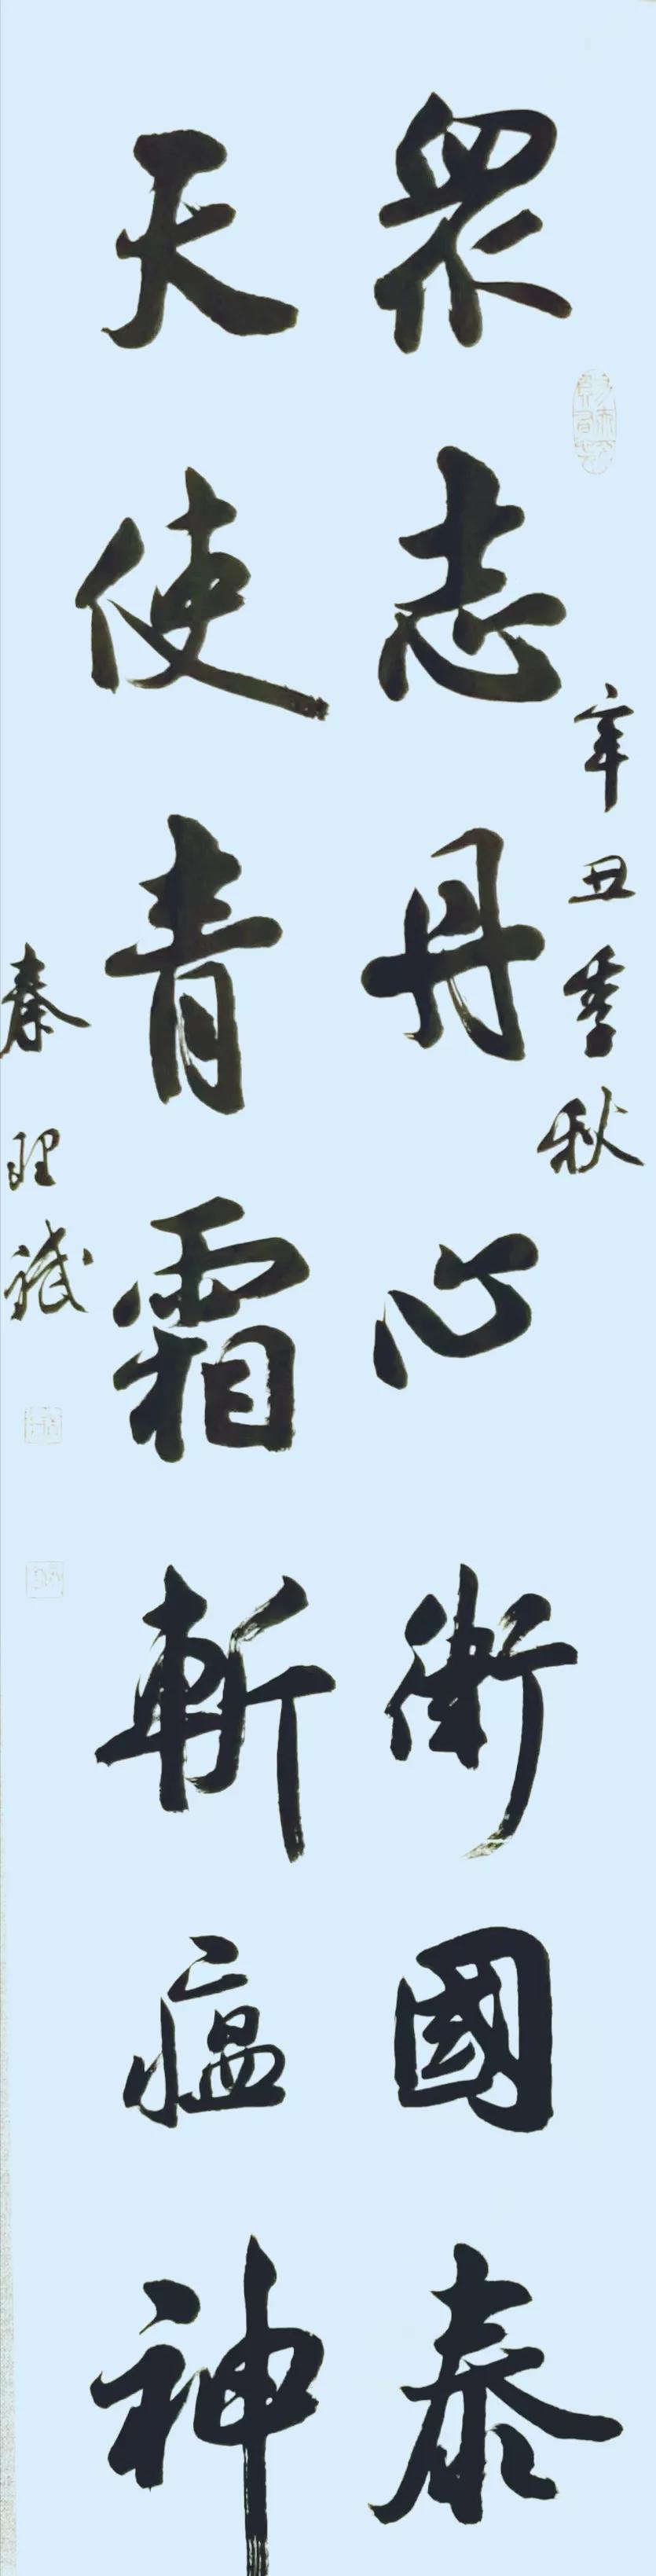 辛丑季秋
眾志丹心衛國泰
天使青霜斬瘟神
秦理斌